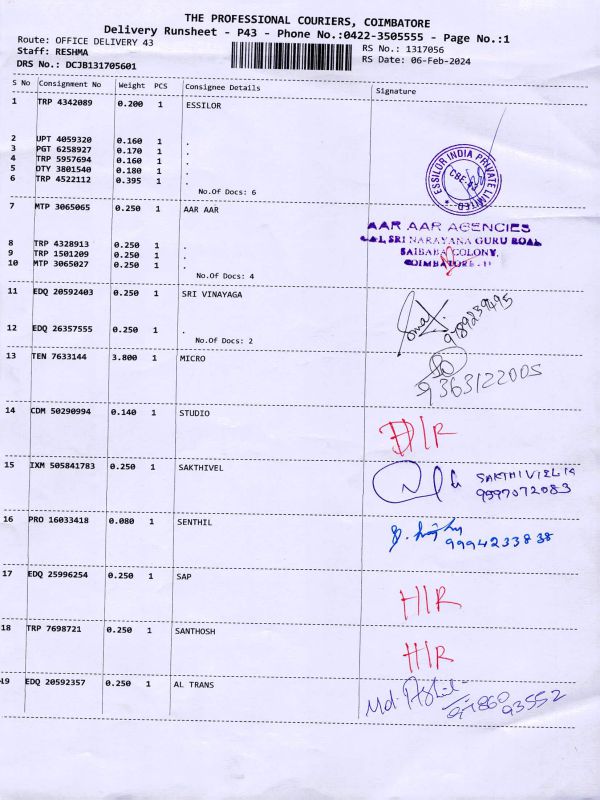 THE PROFESSIONAL COURIERS, COIMBATORE
Delivery Runsheet - P43 - Phone No.:0422-3505555 - Page No.:1
Route: OFFICE DELIVERY 43
RS No.: 1317056
Staff: RESHMA
RS Date: 06-Feb-2024
DRS No.: DCJB131705601
S No Consignment No Weight PCS Consignee Details Signature
1 TRP 4342089 0.200 1 ESSILOR
2 UPT 4059320 0.160 1 .
3 PGT 6258927 0.170 1 .
4 TRP 5957694 0.160 1 .
5 DTY 3801540 0.180 1 .
6 TRP 4522112 0.395 1 .
No.Of Docs: 6
ESSILOR INDIA PRIVATE LIMITED
7 MTP 3065065 0.250 1 AAR AAR
AAR AAR AGENCIES
SRI NARAYANA GURU ROAD,
SAIBABA COLONY,
COIMBATORE - 11
8 TRP 4328913 0.250 1 .
9 TRP 1501209 0.250 1 .
10 MTP 3065027 0.250 1 .
No.Of Docs: 4
11 EDQ 20592403 0.250 1 SRI VINAYAGA
9789239495
12 EDQ 26357555 0.250 1 .
No.Of Docs: 2
13 TEN 7633144 3.800 1 MICRO
9363122005
14 CDM 50290994 0.140 1 STUDIO
D/R
15 IXM 505841783 0.250 1 SAKTHIVEL
SAKTHIVEL K
9997072083
16 PRO 16033418 0.080 1 SENTHIL
9994233838
17 EDQ 25996254 0.250 1 SAP
H/R
18 TRP 7698721 0.250 1 SANTHOSH
H/R
19 EDQ 20592357 0.250 1 AL TRANS
Md.